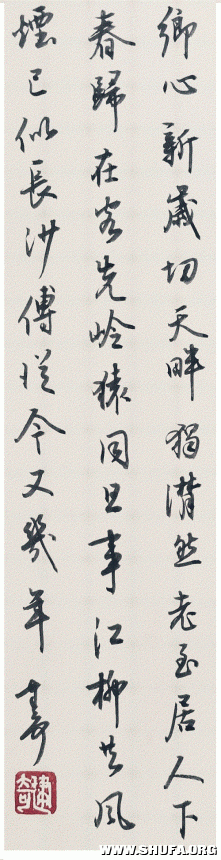 鄉心新歲切天畔獨潸然老至居人下
春歸在客先岭猿同旦事江柳共風
煙已似長沙傅從今又幾年
WWW.SHUFA.ORG